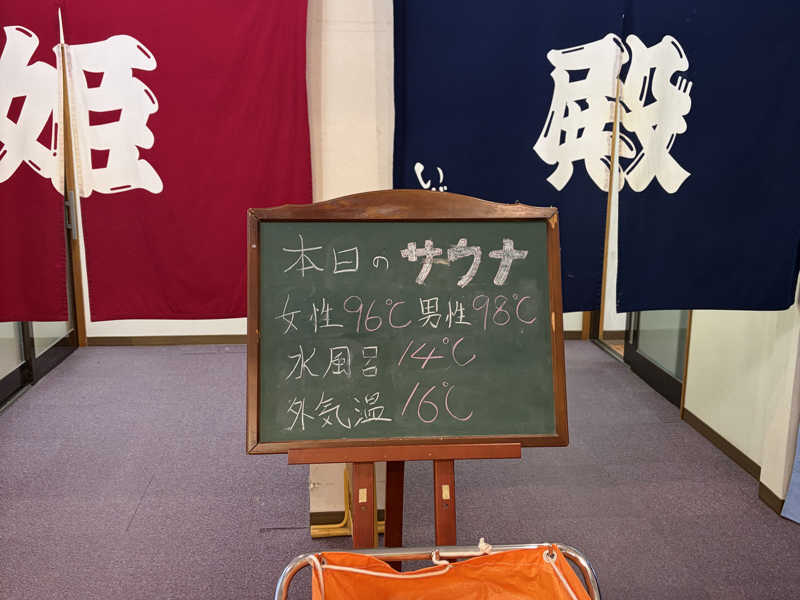 姫
殿
本日のサウナ
女性96℃ 男性98℃
水風呂 14℃
外気温 16℃